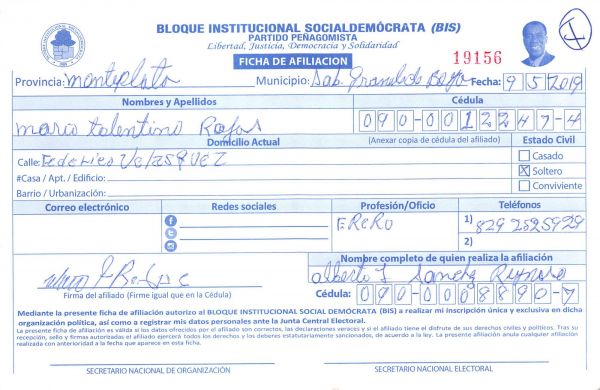 BLOQUE INSTITUCIONAL SOCIALDEMÓCRATA (BIS)
PARTIDO PEÑAGOMISTA
Libertad, Justicia, Democracia y Solidaridad
FICHA DE AFILIACION
19156
Provincia: monteplata Municipio: Sab. Grande de Boya Fecha: 9 5 2019
Nombres y Apellidos Cédula
mario tolentino Rojas 090-0012247-4
Domicilio Actual (Anexar copia de cédula del afiliado) Estado Civil
Calle: Federico VelasQUEZ Casado
#Casa / Apt. / Edificio: X Soltero
Barrio / Urbanización: Conviviente
Correo electrónico Redes sociales Profesión/Oficio Teléfonos
EReRO 1) 829 2525929
2)
Nombre completo de quien realiza la afiliación
alberto Sanchez Reynoso
Firma del afiliado (Firme igual que en la Cédula) Cédula: 090-0008890-7
Mediante la presente ficha de afiliación autorizo al BLOQUE INSTITUCIONAL SOCIAL DEMÓCRATA (BIS) a realizar mi inscripción única y exclusiva en dicha
organización política, así como a registrar mis datos personales ante la Junta Central Electoral.
La presente ficha de afiliación es válida si los datos ofrecidos por el afiliado son correctos, las declaraciones veraces y si el afiliado tiene el disfrute de sus derechos civiles y políticos. Tras su
recepción, sello y firmas autorizadas el afiliado ejercerá todos los derechos y los deberes estatutariamente sancionados, de acuerdo a la ley. La presente afiliación anula cualquier afiliación
realizada con anterioridad a la fecha que aparece en esta ficha.
SECRETARIO NACIONAL DE ORGANIZACIÓN SECRETARIO NACIONAL ELECTORAL